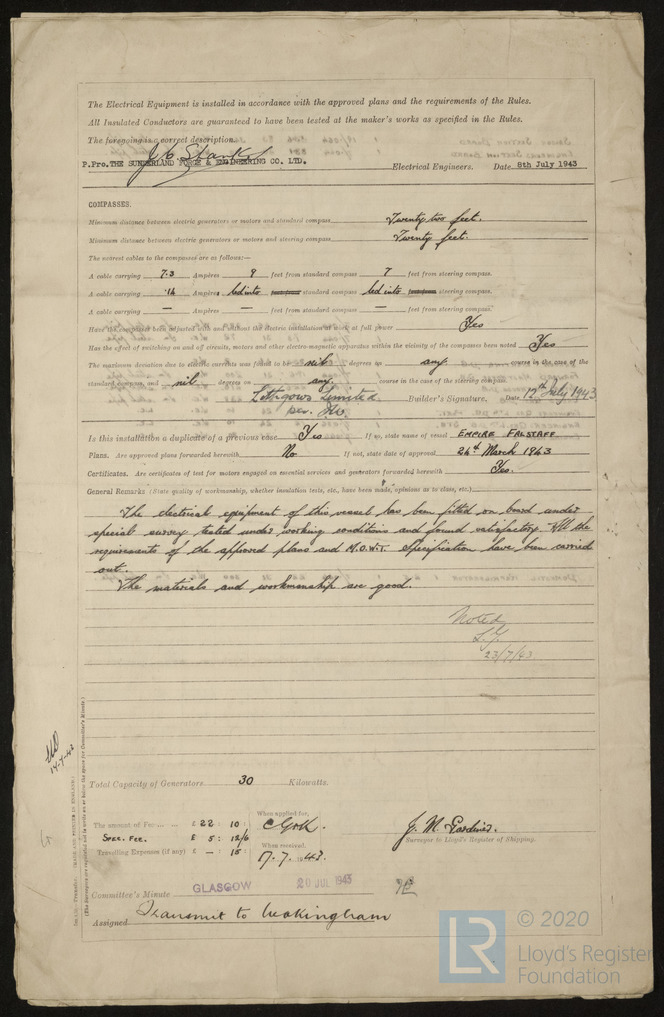 The Electrical Equipment is installed in accordance with the approved plans and the requirements of the Rules.
All Insulated Conductors are guaranteed to have been tested at the maker's works as specified in the Rules.
The foregoing is a correct description.
P.Pro. THE SUNDERLAND FORGE & ENGINEERING CO. LTD. Electrical Engineers. Date 8th July 1943
COMPASSES.
Minimum distance between electric generators or motors and standard compass Twenty two feet.
Minimum distance between electric generators or motors and steering compass Twenty feet.
The nearest cables to the compasses are as follows:—
A cable carrying 7.3 Ampères 9 feet from standard compass 7 feet from steering compass.
A cable carrying .14 Ampères led into standard compass led into steering compass.
A cable carrying — Ampères — feet from standard compass — feet from steering compass.
Have the compasses been adjusted with and without the electric installation at work at full power Yes
Has the effect of switching on and off circuits, motors and other electro-magnetic apparatus within the vicinity of the compasses been noted Yes
The maximum deviation due to electric currents was found to be nil degrees on any course in the case of the
standard compass, and nil degrees on any course in the case of the steering compass.
Lithgows Limited
per. Builder's Signature. Date 12th July 1943
Is this installation a duplicate of a previous case Yes If so, state name of vessel EMPIRE FALSTAFF
Plans. Are approved plans forwarded herewith No If not, state date of approval 24th March 1943
Certificates. Are certificates of test for motors engaged on essential services and generators forwarded herewith Yes.
General Remarks (State quality of workmanship, whether insulation tests, etc., have been made, opinions as to class, etc.)
The electrical equipment of this vessel has been fitted on board under
special survey tested under working conditions and found satisfactory. All the
requirements of the approved plans and M.O.W.T. Specification have been carried
out.
The materials and workmanship are good.
Noted
23/7/43
14-7-43
Total Capacity of Generators 30 Kilowatts.
The amount of Fee £ 22 : 10 : When applied for,
Spec. Fee. £ 5 : 12/6
Travelling Expenses (if any) £ — : 15 : When received,
17.7.1943.
J. M. Gardner.
Surveyor to Lloyd's Register of Shipping.
Committee's Minute GLASGOW 20 JUL 1943
Assigned Transmit to Wokingham
(The Surveyors are requested not to write on or below the space for Committee's Minute)
© 2020
LR
Lloyd's Register
Foundation